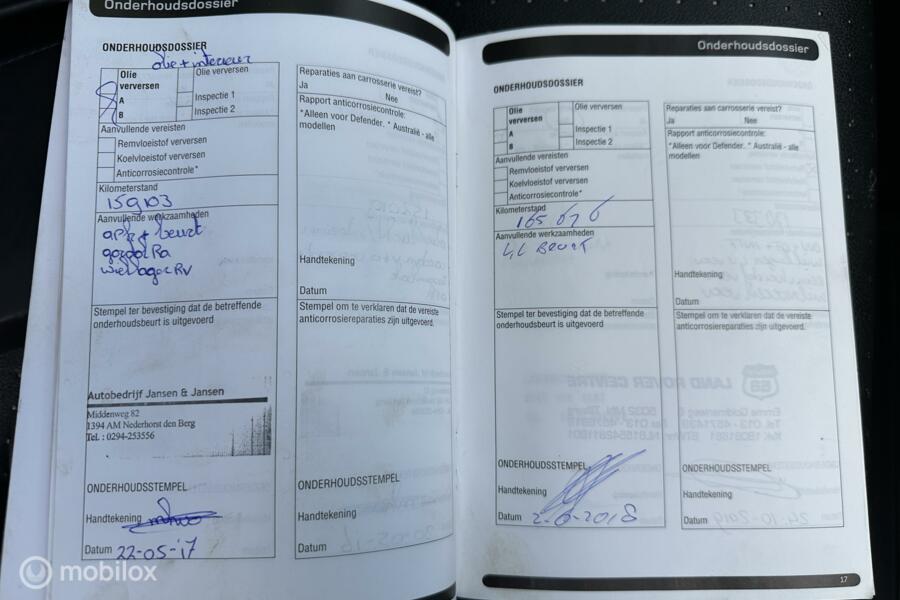 Onderhoudsdossier
ONDERHOUDSDOSSIER
olie + interieur
Olie verversen
A
B
Olie verversen
Inspectie 1
Inspectie 2
Aanvullende vereisten
Remvloeistof verversen
Koelvloeistof verversen
Anticorrosiecontrole*
Kilometerstand
159103
Aanvullende werkzaamheden
apk + beurt
Ra
wiellager RV
Stempel ter bevestiging dat de betreffende
onderhoudsbeurt is uitgevoerd
Autobedrijf Jansen & Jansen
Middenweg 82
1394 AM Nederhorst den Berg
Tel. : 0294-253556
ONDERHOUDSSTEMPEL
Handtekening
Datum 22-05-17
Reparaties aan carrosserie vereist?
Ja Nee
Rapport anticorrosiecontrole:
*Alleen voor Defender. * Australië - alle
modellen
Handtekening
Datum
Stempel om te verklaren dat de vereiste
anticorrosiereparaties zijn uitgevoerd.
ONDERHOUDSSTEMPEL
Handtekening
Datum
Onderhoudsdossier
ONDERHOUDSDOSSIER
Olie
verversen
A
B
Olie verversen
Inspectie 1
Inspectie 2
Aanvullende vereisten
Remvloeistof verversen
Koelvloeistof verversen
Anticorrosiecontrole*
Kilometerstand
165 676
Aanvullende werkzaamheden
Beurt
Stempel ter bevestiging dat de betreffende
onderhoudsbeurt is uitgevoerd
ONDERHOUDSSTEMPEL
Handtekening
Datum 2-6-2018
Reparaties aan carrosserie vereist?
Ja Nee
Rapport anticorrosiecontrole:
*Alleen voor Defender. * Australië - alle
modellen
Handtekening
Datum
Stempel om te verklaren dat de vereiste
anticorrosiereparaties zijn uitgevoerd.
ONDERHOUDSSTEMPEL
Handtekening
Datum
17
mobilox